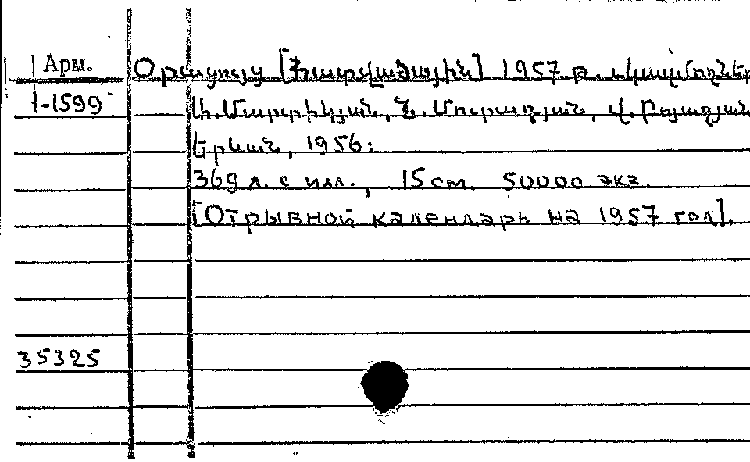 Арм. Օրացույց [Հատվածային] 1957 թ. Կազմողներ
1-1599 Ս. Մարտիկյան, Ն. Մուրադյան, Վ. Բոյաջյան.
Երևան, 1956:
369 л. с илл., 15 см. 50000 экз.
[Отрывной календарь на 1957 год].
35325